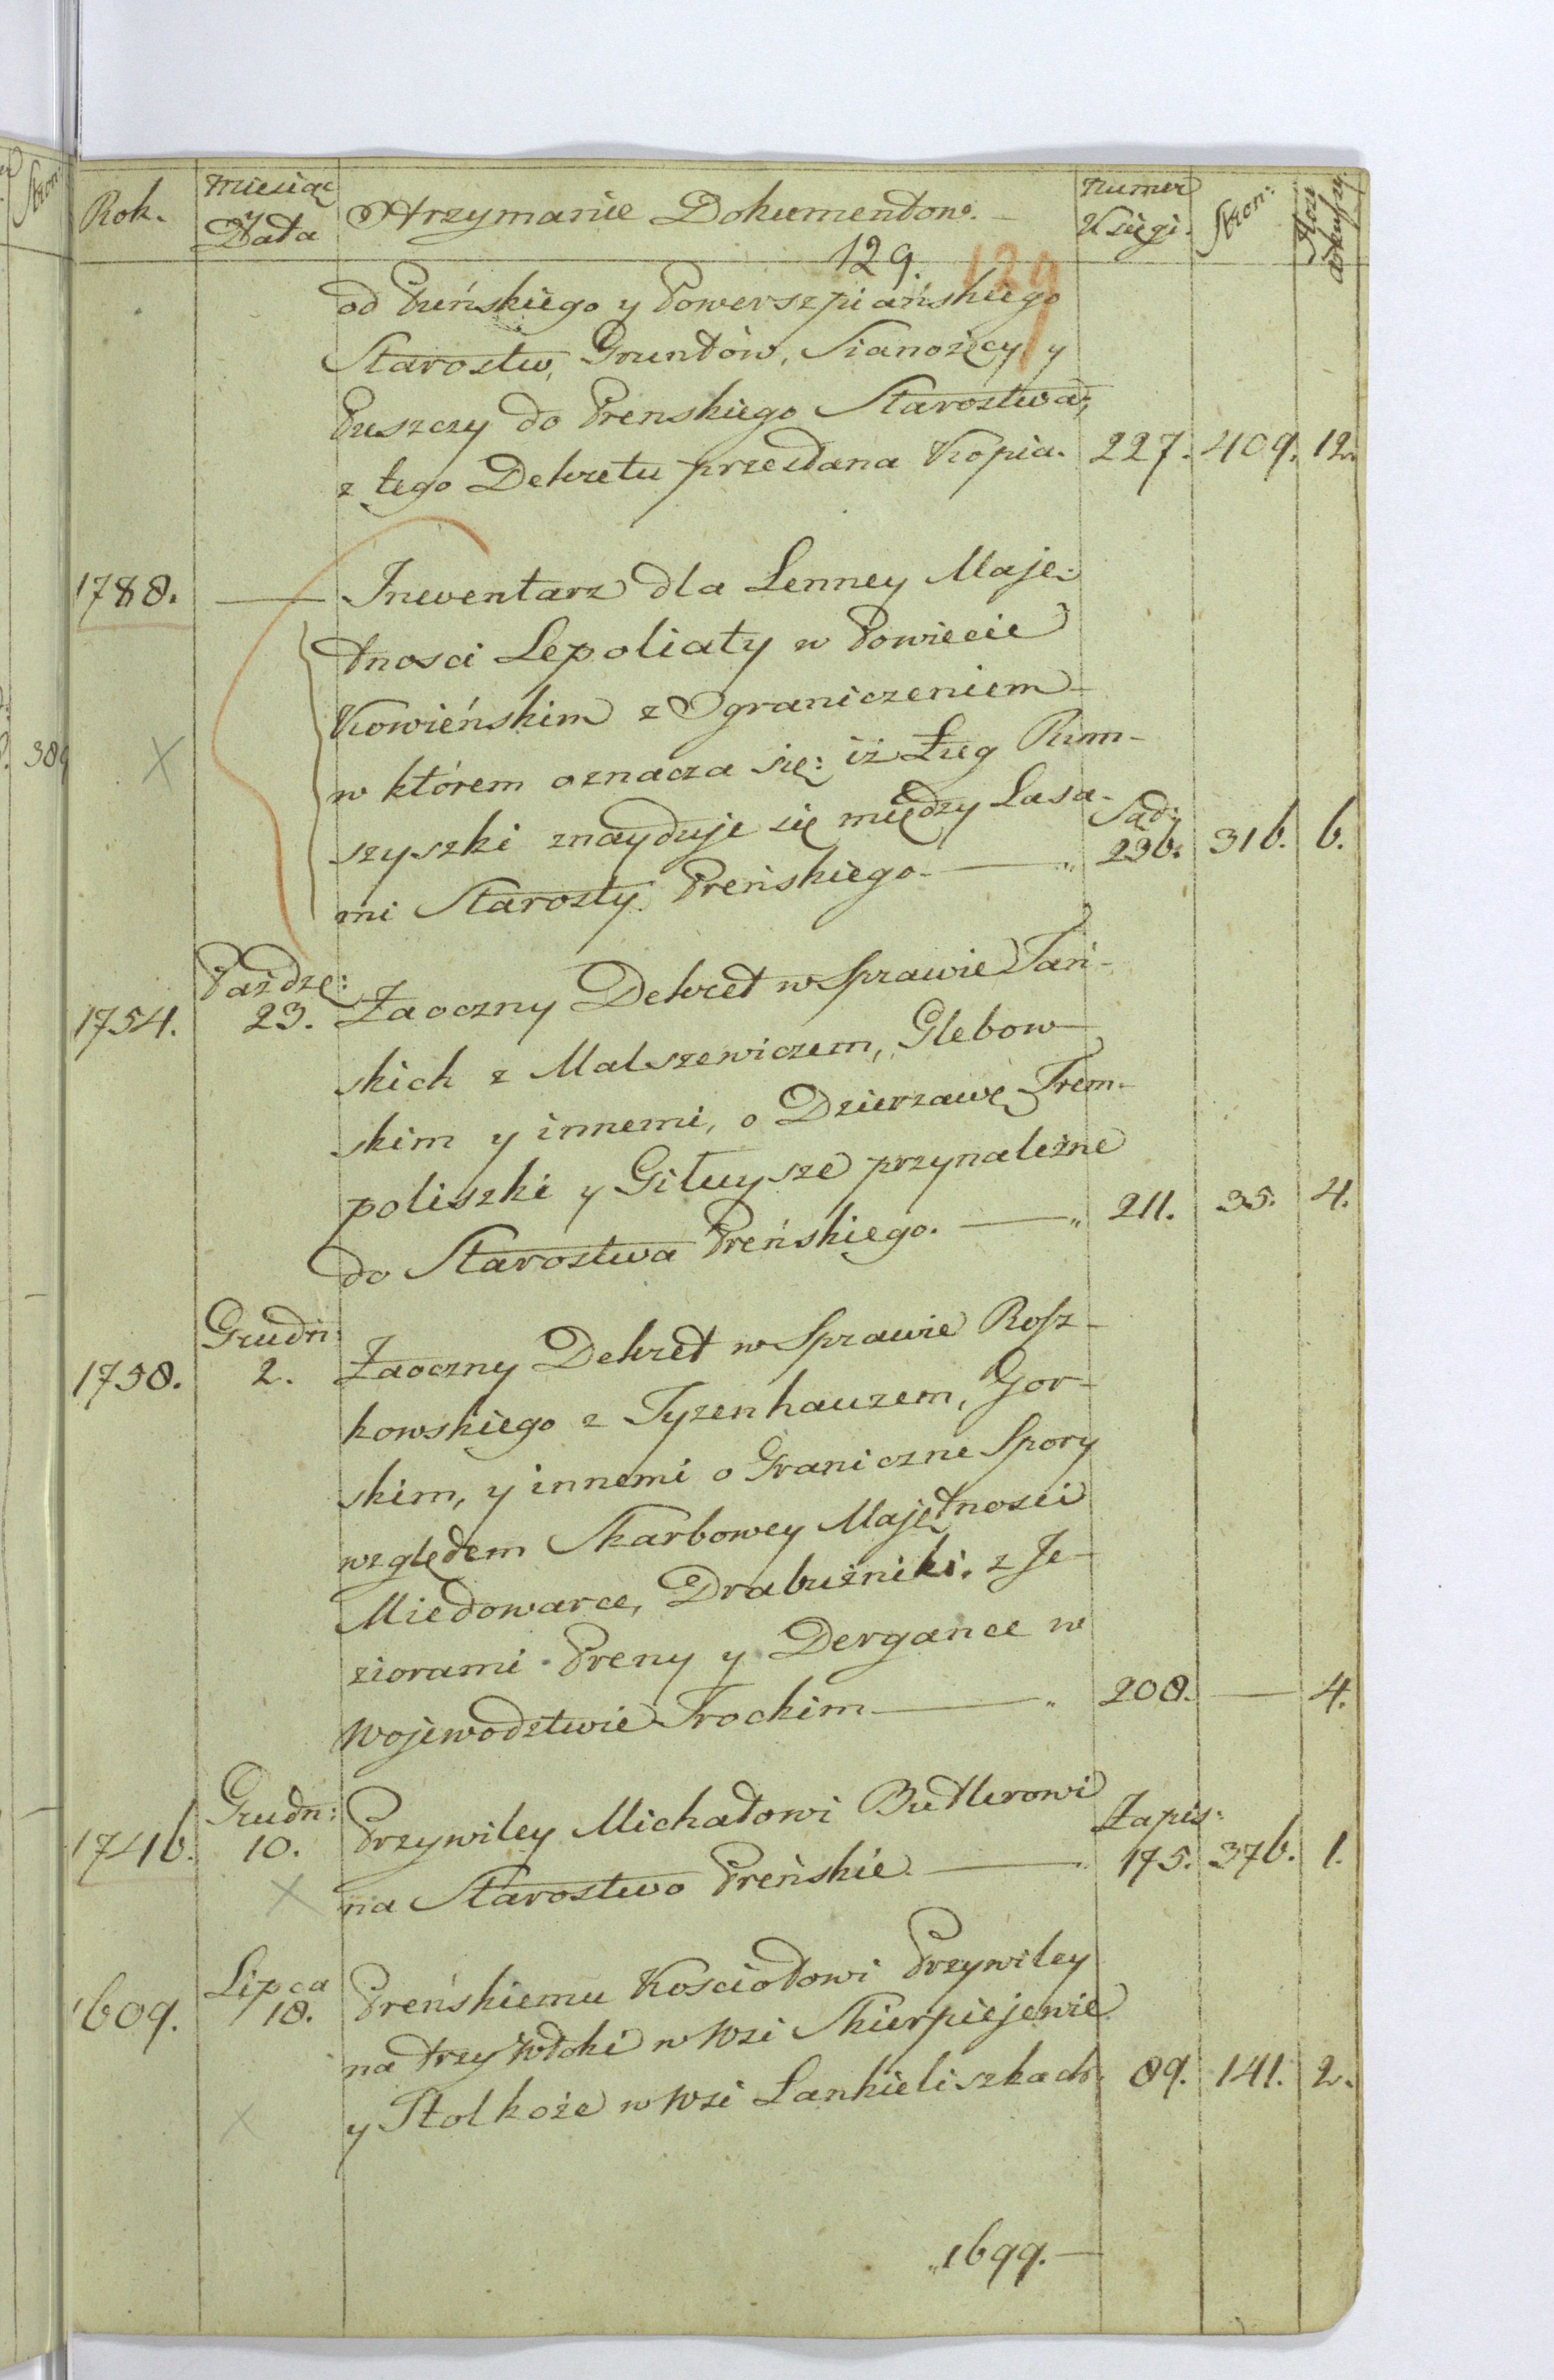 Rok. Miesiąc y Data Otrzymanie Dokumentow. Numer Księgi. Stron: Ilość arkuszy
129. 129
od Puńskiego y Powerszpiańskiego
Starostw, Gruntów, Sianożęcy y
Puszczy do Prenskiego Starostwa;
z tego Dekretu przesłana Kopia. 227. 409. 12.
1788. — Inwentarz dla Lenney Maję-
tnosci Lepoliaty w Powiecie
Kowieńskim z Ograniczeniem
w którem oznacza się: iż Ług Rum-
szyszki znayduje się między Lasa-
mi Starosty Preńskiego. — Sąd: 236. 316. 6.
1754. Paźdze: 23. Zaoczny Dekret w Sprawie Tań-
skich z Malszewiczem, Glebow-
skim y innemi, o Dzierzawę Trem-
poliszki y Giłuysze przynależne
do Starostwa Preńskiego. — 211. 35. 4.
1758. Grudn: 2. Zaoczny Dekret w Sprawie Rosz-
kowskiego z Tyzenhauzem, Gor-
skim, y innemi o Graniczne Spory
względem Skarbowey Majętnosci
Miedowarce, Drabużniki. z Je-
ziorami Preny y Dergance w
Wojewodztwie Trockim — 208. — 4.
1746. Grudn: 10. Przywiley Michałowi Butlerowi
na Starostwo Preńskie — Zapis: 175. 376. 1.
1609. Lipca 18. Preńskiemu Kosciołowi Przywiley
na trzy Włoki w Wsi Skierpiejewie
y Stolkoże w Wsi Lankieliszkach. 89. 141. 2.
1699. —